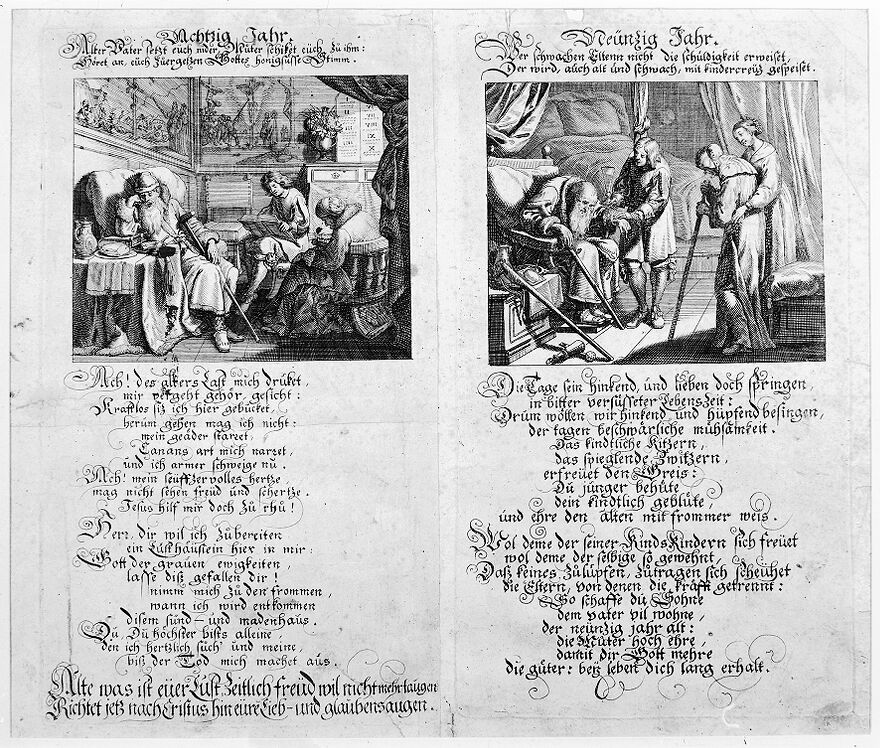 Achtzig Jahr.
Alter Vater setzt euch nider, Mûter schiket euch zû ihm:
Höret an, euch zûergetzen Gottes honigsûsse Stimm.
Ach! des alters Last mich drûket,
mir vergeht gehör, gesicht:
Kraftlos siz ich hier gebûcket,
herûm gehen mag ich nicht:
mein geäder starret,
Canans art mich narret,
und ich armer schweige nû.
Ach! mein seûffzervolles hertze
mag nicht sehen freûd und schertze.
Jesus hilf mir doch zû rhû!
Herr, dir wil ich zûbereiten
ein Lusthäuslein hier in mir:
Gott der grauen ewigkeiten,
lasse diß gefallen dir!
nimm mich zû den frommen,
wann ich wird entkommen
disem sûnd- und madenhaûs.
Dû, Dû höchster bists alleine,
den ich hertzlich sûch' und meine,
biß der Tod mich machet aûs.
Alte was ist eûer Lust Zeitlich freûd wil nicht mehr taugen
Richtet jetz nach Cristus hin eure Lieb- und glaubensaugen.
Neûnzig Jahr.
Wer schwachen Eltern nicht die schûldigkeit erweiset,
Der wird, auch alt und schwach, mit kindercreûz gespeiset.
Die Tage sein hinkend, und lieben doch springen,
in bitter versûsseter Lebenszeit:
Drûm wöllen wir hinkend und hûpfend besingen,
der tagen beschwärliche mûhsamkeit.
Das kindliche Kitzern,
das spieglende Zwitzern,
erfreûet den Greis:
Dû jûnger behûte
dein kindlich geblûte,
und ehre den alten mit frommer weis.
Wol deme der seiner KindsKindern sich freûet
wol deme der selbige so gewehnt,
Daß keines zûlûpfen, zûtragen sich scheûhet
die Eltern, von denen die kräfft getrennt:
So schaffe dû Sohne
dem vater vil wohne,
der neûnzig jahr alt:
die Mûter hoch ehre,
damit dir Gott mehre
die gûter: beÿ leben dich lang erhalt.